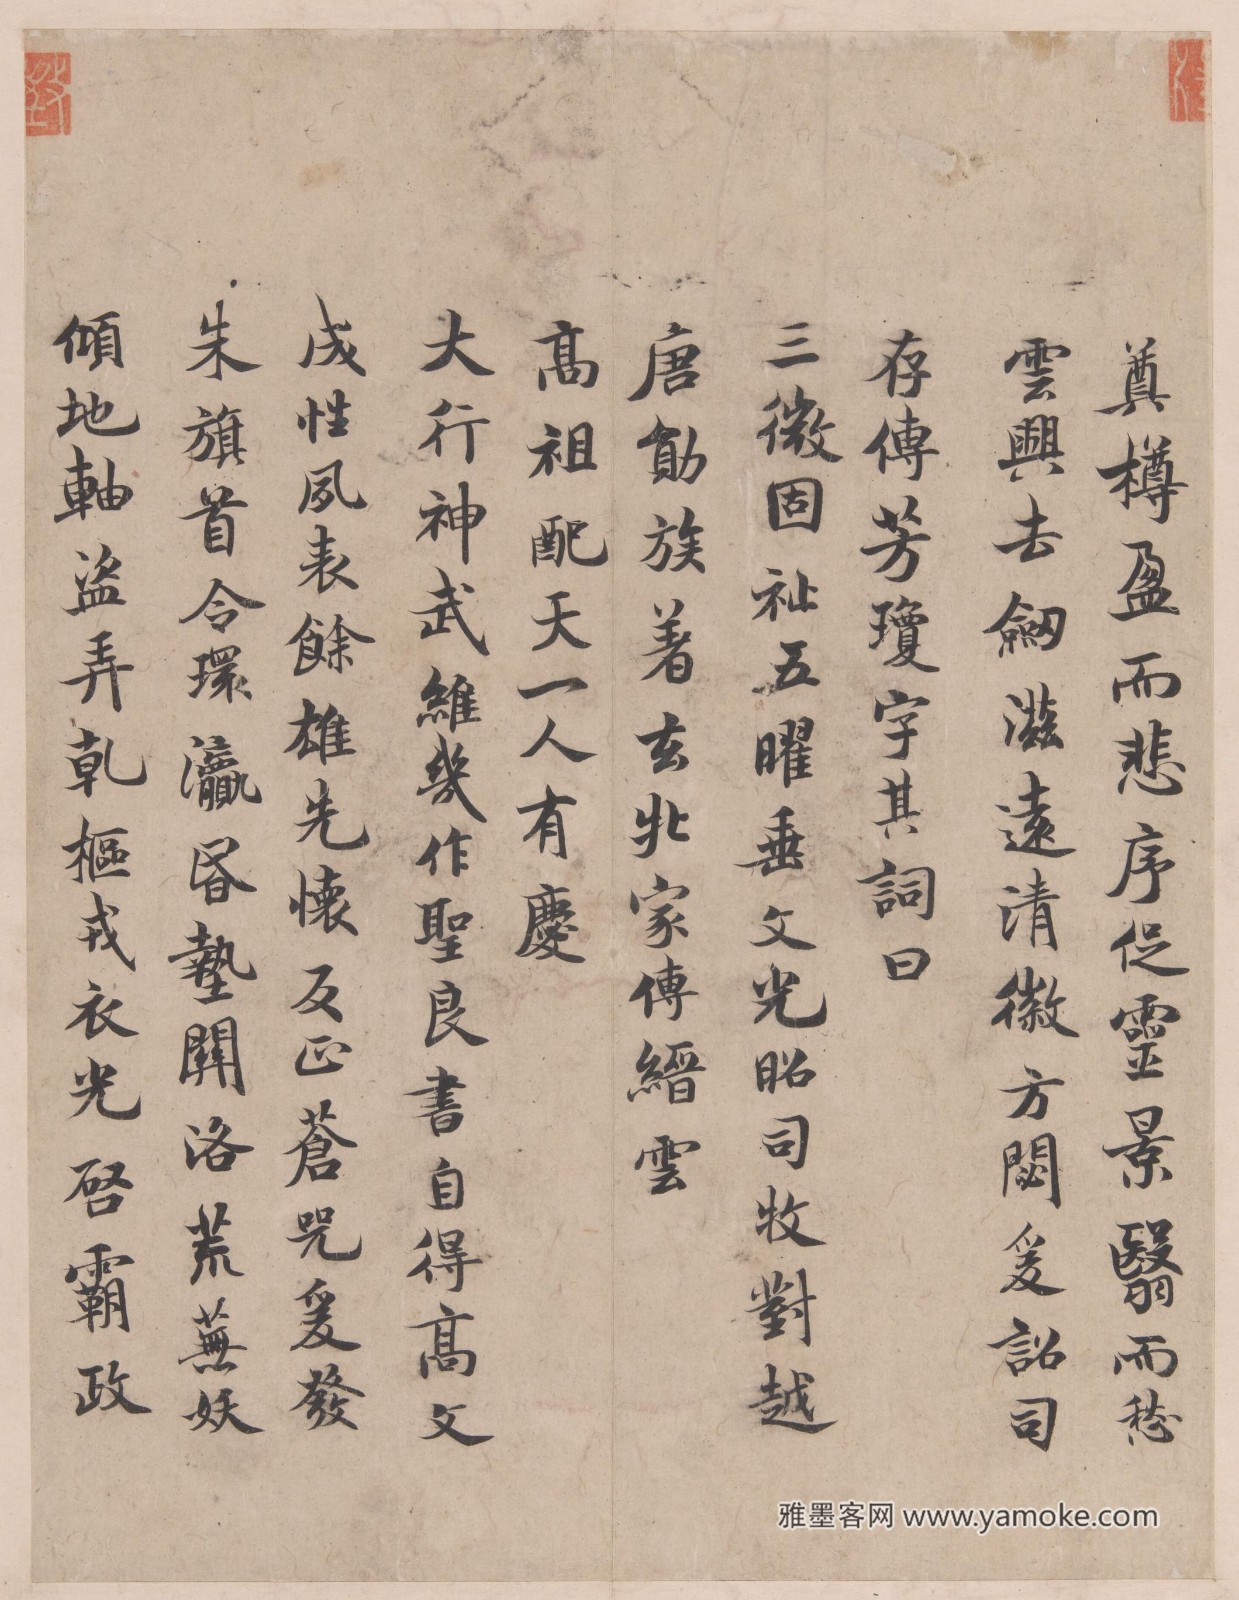 奠樽盈而悲序促靈景翳而愁
雲興去劒滋遠清徽方閟爰詔司
存傳芳瓊字其詞曰
三微固祉五曜垂文光昭司牧對越
唐勛族著玄北家傳縉雲
髙祖配天一人有慶
大行神武維幾作聖良書自得髙文
成性夙表餘雄先懷反正蒼咒爰發
朱旗首令環瀛昏墊關洛荒蕪妖
傾地軸盜弄乹樞戎衣光啓霸政
雅墨客网 www.yamoke.com